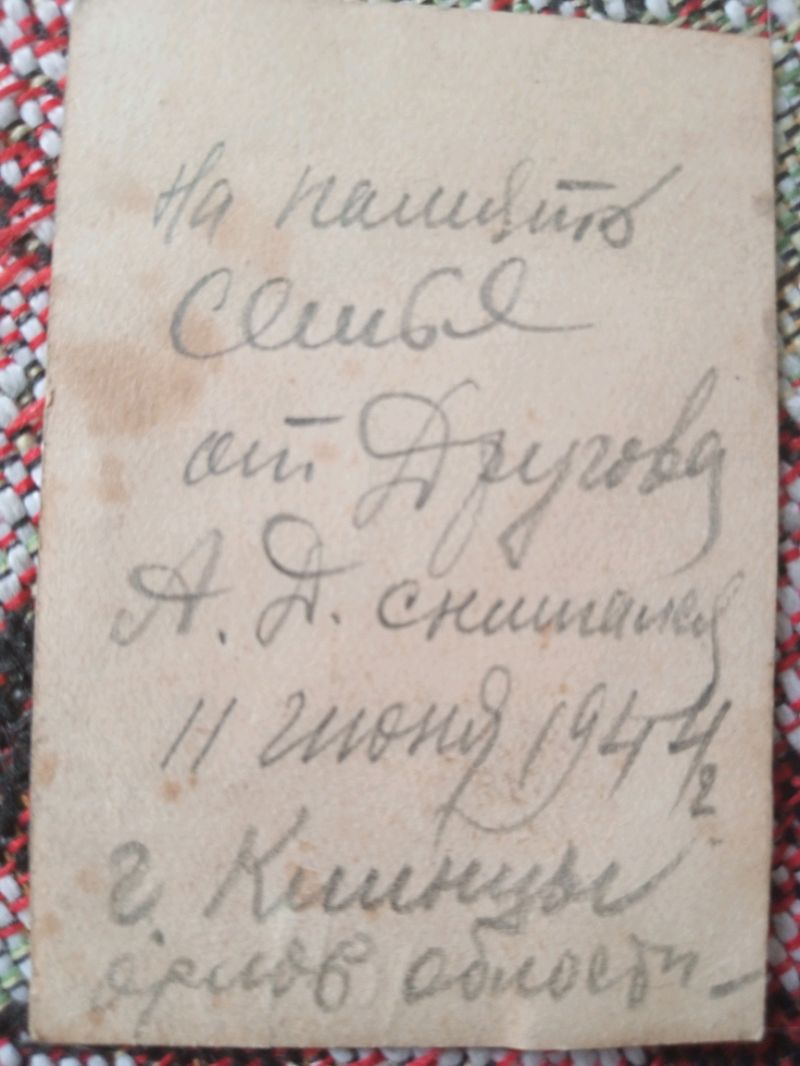 На память
Семья
от Другова
А. Д. снимался
11 июня 1944 г.
г. Клинцы
орлов области